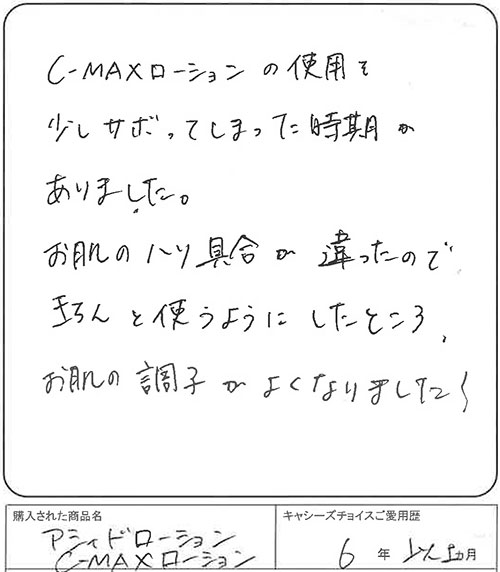 C-MAXローションの使用を
少しサボってしまった時期が
ありました。
お肌のハリ具合が違ったので
きちんと使うようにしたところ、
お肌の調子がよくなりました!
購入された商品名
アシィドローション
C-MAXローション
キャシーズチョイスご愛用歴
6年 ヶ月